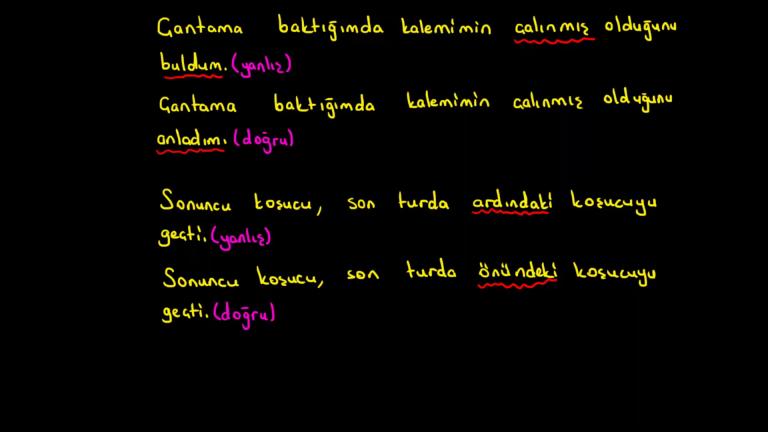 Çantama baktığımda kalemimin çalınmış olduğunu
buldum. (yanlış)
Çantama baktığımda kalemimin çalınmış olduğunu
anladım. (doğru)
Sonuncu koşucu, son turda ardındaki koşucuyu
geçti. (yanlış)
Sonuncu koşucu, son turda önündeki koşucuyu
geçti. (doğru)